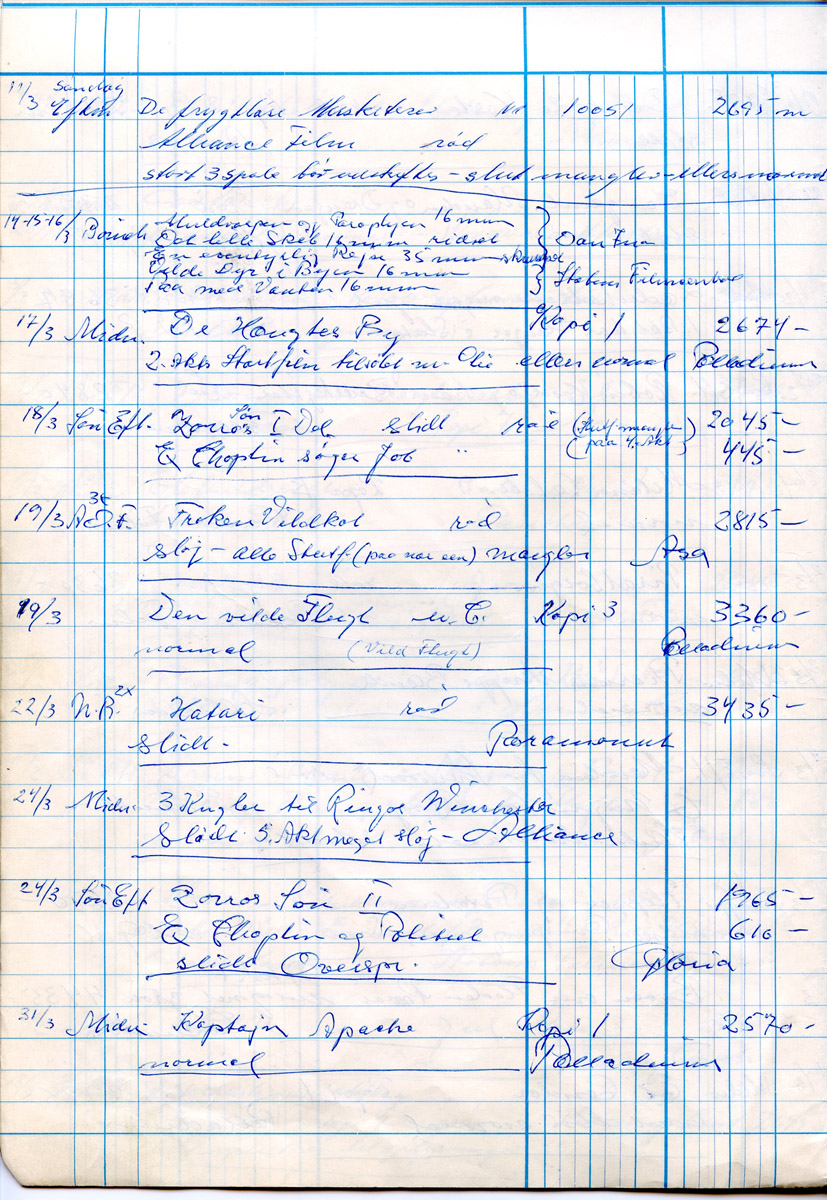 11/3 Søndag Eftm De frygtløse Musketerer Nr 10051 2695 m
Alliance Film rød
stort 3 spole bør udskiftes - slut mangler - ellers normal
14-15-16/3 Muldvarpen og Paraplyen 16 mm
Det lille Skib 16 mm ridset } Dan Ina
En eventyrlig Rejse 35 mm
Vilde Dyr i Byen 16 mm } Statens Filmcentral
Paa med Vanten 16 mm
17/3 Midn. De Hængtes By Kopi 1 2674 -
2. Akts Startfilm tilsølet m. Olie ellers normal Palladium
18/3 Søn Eft. Zorros Søn I Del slidt rød (Slutf. mangler 2045 -
E Chaplin søger Job " (paa 4. Akt) 445 -
19/3 Frøken Vildkat rød 2815 -
sløj - alle Startf (paa nær een) mangler Asa
19/3 Den vilde Flugt m. C. Kopi 3 3360 -
normal (Vild Flugt) Palladium
22/3 N.R. 2x Hatari rød 3435 -
slidt - Paramount
24/3 Midn. 3 Kugler til Ringos Winchester
Slidt 5. Akt meget sløj - Alliance
24/3 Søn Eff Zorros Søn II 1965 -
E Chaplin og Politiet 610 -
slidt Overspr. Gloria
31/3 Midn Kaptajn Apache Kopi 1 2570 -
normal Palladium